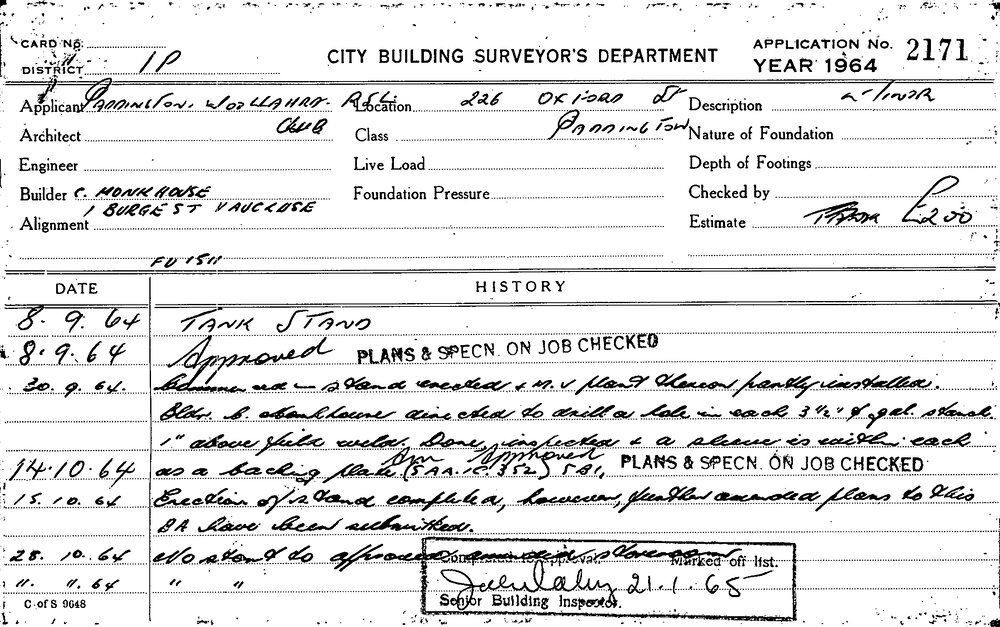 CARD No.
CITY BUILDING SURVEYOR'S DEPARTMENT
APPLICATION No. 2171
DISTRICT 1P
YEAR 1964
Applicant PADDINGTON. WOOLLAHRA. R.S.L. Location 226 OXFORD ST Description
Architect CLUB Class PADDINGTON Nature of Foundation
Engineer Live Load Depth of Footings
Builder C. MONKHOUSE Foundation Pressure Checked by
1 BURGE ST VAUCLUSE
Alignment Estimate £200
FU 1511
DATE HISTORY
8. 9. 64 TANK STAND
8. 9. 64 Approved PLANS & SPECN. ON JOB CHECKED
30. 9. 64. Commenced - stand erected & M.V plant thereon partly installed.
Bldr. C. Monkhouse directed to drill a hole in each 3½" gal. stanch.
1" above field weld. Done, inspected & a sleeve is within each
Am Approved
14.10.64 as a backing plate. (SAA.IC.352) PLANS & SPECN. ON JOB CHECKED
15. 10. 64 Erection of stand completed, however, further amended plans to this
BA have been submitted.
28. 10. 64 No start to approved amended
Completed to Approval. Marked off list.
". ".64 " "
21.1.65
Senior Building Inspector.
C of S 9648